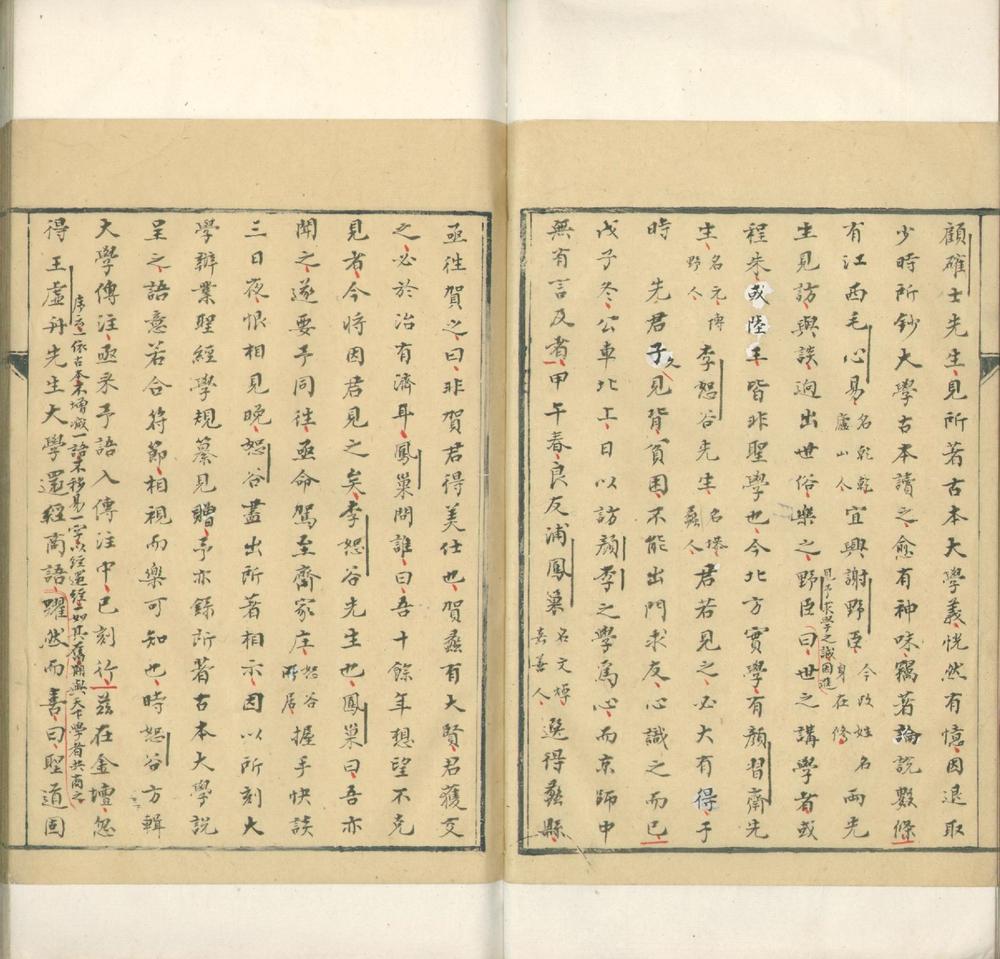 顧確士先生見所著古本大學義恍然有憶因退取
少時所鈔大學古本讀之愈有神味竊著論說數條
有江西毛心易名乾乾廬山人宜興謝野臣今改姓名身在修兩先
生見訪與談逈出世俗樂之野臣見予大學之識因進曰世之講學者或
程朱或陸王皆非聖學也今北方實學有顏習齋先
生名元博野人李恕谷先生名塨蠡人君若見之必大有得于
時先君子久見背貧困不能出門求友心識之而已
戊子冬公車北上日以訪顏李之學為心而京師中
無有言及者甲午春良友浦鳳巢名文焯嘉善人選得蠡縣
亟往賀之曰非賀君得美仕也賀蠡有大賢君獲交
之必於治有濟耳鳳巢問誰曰吾十餘年想望不克
見者今將因君見之矣李恕谷先生也鳳巢曰吾亦
聞之遂要予同往亟命駕至齊家庄恕谷所居握手快談
三日夜恨相見晚恕谷盡出所著相示因以所刻大
學辦業聖經學規纂見贈予亦錄所著古本大學說
呈之語意若合符節相視而樂可知也時恕谷方輯
大學傳注亟采予語入傳注中已刻行兹在金壇忽
得王虛舟先生大學還經商語序云一依古本不增減一語不移易一字以經還經一如其舊願與天下學者共商之躍然而善曰聖道固